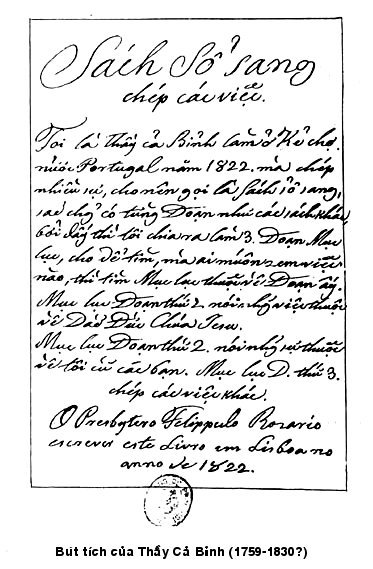 Sách Sổ sang
chép các việc.
Tôi là thầy cả Bỉnh làm ở Kẻ chợ
nước Portugal năm 1822. mà chép
nhiều sự, cho nên gọi là Sách sổ sang,
saữ chẳng có từng Đoạn như các sách khác,
bởi đấy thì tôi chia ra làm 3. Đoạn Mục
lục, cho dễ tìm, mà ai muốn xem việc
nào, thì tìm Mục lục thuộc về Đoạn ấy.
Mục lục Đoạn thứ 2. nói những việc thuộc
về Dào Đức Chúa Jesu.
Mục lục Đoạn thứ 2. nói những sự thuộc
về tôi cũ các bạn. Mục lục D. thứ 3.
chép các việc khác.
O Presbytero Felippe do Rosario
escreveu este Livro em Lisboa no
anno de 1822.
Bút tích của Thầy Cả Bỉnh (1759-1830?)